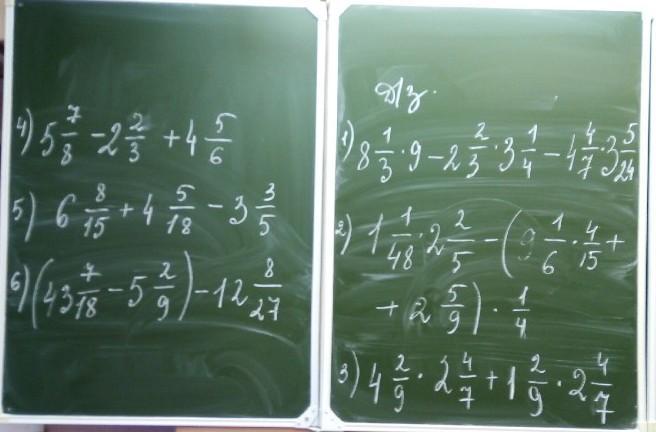 4) 5 7/8 - 2 2/3 + 4 5/6
5) 6 8/15 + 4 5/18 - 3 3/5
6) (43 7/18 - 5 2/9) - 12 8/27
Д/з.
1) 8 1/3 · 9 - 2 2/3 · 3 1/4 - 4 4/7 · 3 5/24
2) 1 1/48 · 2 2/5 - (9 1/6 · 4/15 +
+ 2 5/9) · 1/4
3) 4 2/9 · 2 4/7 + 1 2/9 · 2 4/7